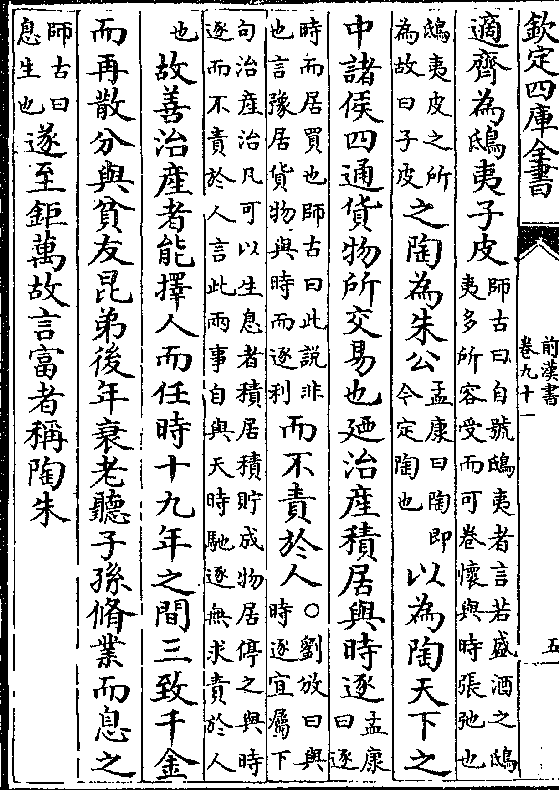 欽定四庫全書
前漢書
卷九十一
五
適齊為鴟夷子皮師古曰自號鴟夷者言若盛酒之鴟夷多所容受而可卷懷與時張弛也
鴟夷皮之所為故曰子皮之陶為朱公孟康曰陶即今定陶也以為陶天下之
中諸侯四通貨物所交易也廼治產積居與時逐孟康曰逐
時而居買也師古曰此說非也言豫居貨物與時而逐利而不責於人○劉放曰與時逐宜屬下
句治產治凡可以生息者積居積貯成物居停之與時逐而不責於人言此兩事自與天時馳逐無求責於人
也故善治產者能擇人而任時十九年之間三致千金
而再散分與貧友昆弟後年衰老聽子孫脩業而息之
師古曰息生也遂至鉅萬故言富者稱陶朱